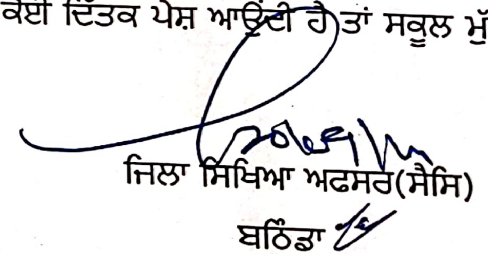 ਕੋਈ ਦਿੱਤਕ ਪੇਸ਼ ਆਉਂਦੀ ਹੈ ਤਾਂ ਸਕੂਲ ਮੁੱ
ਜਿਲਾ ਸਿਖਿਆ ਅਫਸਰ(ਸੈਸਿ)
ਬਠਿੰਡਾ